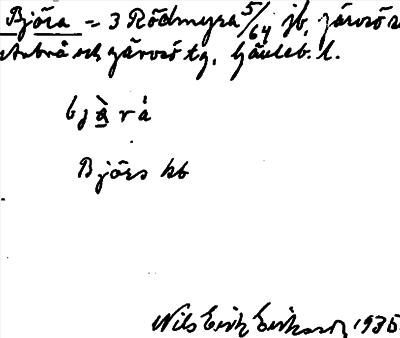 Björa = 3 Rödmyra 5/64 jb, järvsö s
Stabrå och järvsö tg. Gävleb. l.
bjèrá
Björs kb
Nils Erik Eriksson 1935